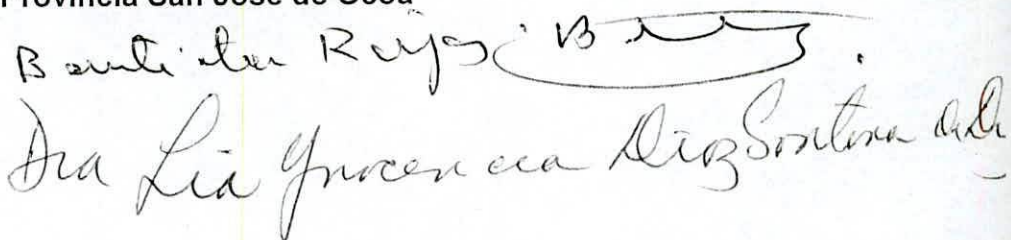 Provincia San José de Ocoa
Bautista Rojas
Dra Lia Ynocencia Diaz Santana de Di